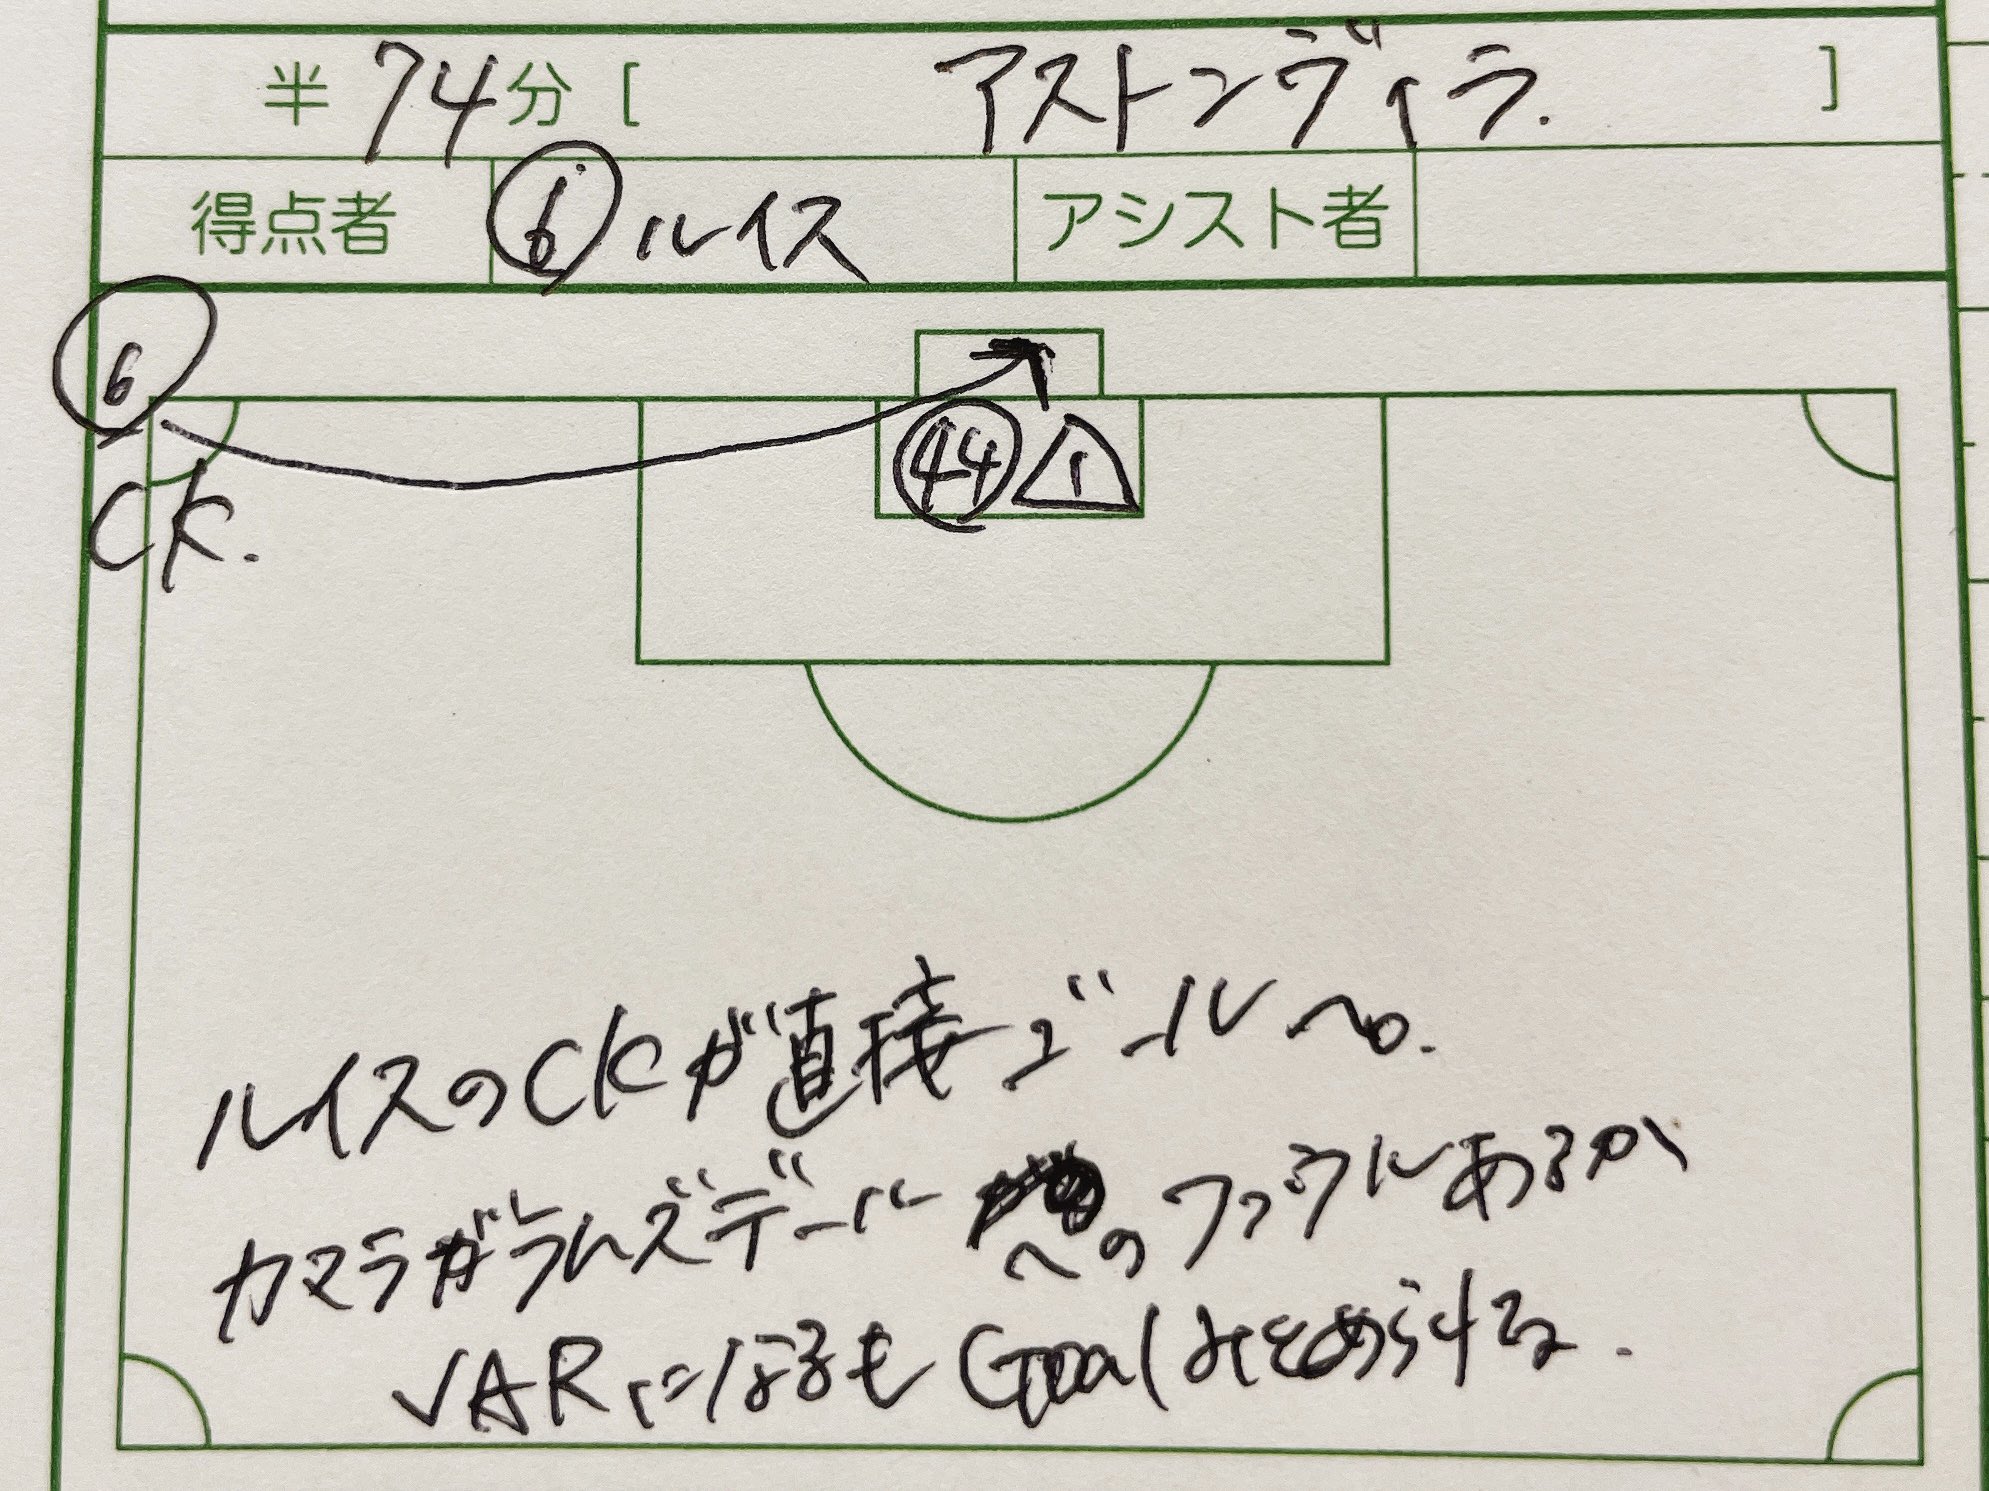 半 74分 [ アストンヴィラ. ]
得点者 ⑥ ルイス アシスト者
6
CK.
44 1
ルイスのCKが直接ゴールへ。
カマラがラムズデールへのファウルあるか
VARになるも Goalはみとめられる.